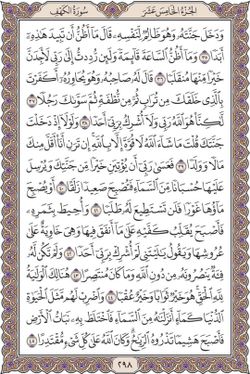 الجزء الخامس عشر
سورة الكهف
وَدَخَلَ جَنَّتَهُۥ وَهُوَ ظَالِمٌ لِّنَفْسِهِۦ قَالَ مَآ أَظُنُّ أَن تَبِيدَ هَٰذِهِۦٓ
أَبَدًا ٣٥ وَمَآ أَظُنُّ ٱلسَّاعَةَ قَآئِمَةً وَلَئِن رُّدِدتُّ إِلَىٰ رَبِّى لَأَجِدَنَّ
خَيْرًا مِّنْهَا مُنقَلَبًا ٣٦ قَالَ لَهُۥ صَاحِبُهُۥ وَهُوَ يُحَاوِرُهُۥٓ أَكَفَرْتَ
بِٱلَّذِى خَلَقَكَ مِن تُرَابٍ ثُمَّ مِن نُّطْفَةٍ ثُمَّ سَوَّىٰكَ رَجُلًا
٣٧ لَّٰكِنَّا۠ هُوَ ٱللَّهُ رَبِّى وَلَآ أُشْرِكُ بِرَبِّىٓ أَحَدًا ٣٨ وَلَوْلَآ إِذْ دَخَلْتَ
جَنَّتَكَ قُلْتَ مَا شَآءَ ٱللَّهُ لَا قُوَّةَ إِلَّا بِٱللَّهِ إِن تَرَنِ أَنَا۠ أَقَلَّ مِنكَ
مَالًا وَوَلَدًا ٣٩ فَعَسَىٰ رَبِّىٓ أَن يُؤْتِيَنِ خَيْرًا مِّن جَنَّتِكَ وَيُرْسِلَ
عَلَيْهَا حُسْبَانًا مِّنَ ٱلسَّمَآءِ فَتُصْبِحَ صَعِيدًا زَلَقًا ٤٠ أَوْ يُصْبِحَ
مَآؤُهَا غَوْرًا فَلَن تَسْتَطِيعَ لَهُۥ طَلَبًا ٤١ وَأُحِيطَ بِثَمَرِهِۦ
فَأَصْبَحَ يُقَلِّبُ كَفَّيْهِ عَلَىٰ مَآ أَنفَقَ فِيهَا وَهِىَ خَاوِيَةٌ عَلَىٰ
عُرُوشِهَا وَيَقُولُ يَٰلَيْتَنِى لَمْ أُشْرِكْ بِرَبِّىٓ أَحَدًا ٤٢ وَلَمْ تَكُن لَّهُۥ
فِئَةٌ يَنصُرُونَهُۥ مِن دُونِ ٱللَّهِ وَمَا كَانَ مُنتَصِرًا ٤٣ هُنَالِكَ ٱلْوَلَٰيَةُ
لِلَّهِ ٱلْحَقِّ هُوَ خَيْرٌ ثَوَابًا وَخَيْرٌ عُقْبًا ٤٤ وَٱضْرِبْ لَهُم مَّثَلَ ٱلْحَيَوٰةِ
ٱلدُّنْيَا كَمَآءٍ أَنزَلْنَٰهُ مِنَ ٱلسَّمَآءِ فَٱخْتَلَطَ بِهِۦ نَبَاتُ ٱلْأَرْضِ
فَأَصْبَحَ هَشِيمًا تَذْرُوهُ ٱلرِّيَٰحُ وَكَانَ ٱللَّهُ عَلَىٰ كُلِّ شَىْءٍ مُّقْتَدِرًا ٤٥
٢٩٨